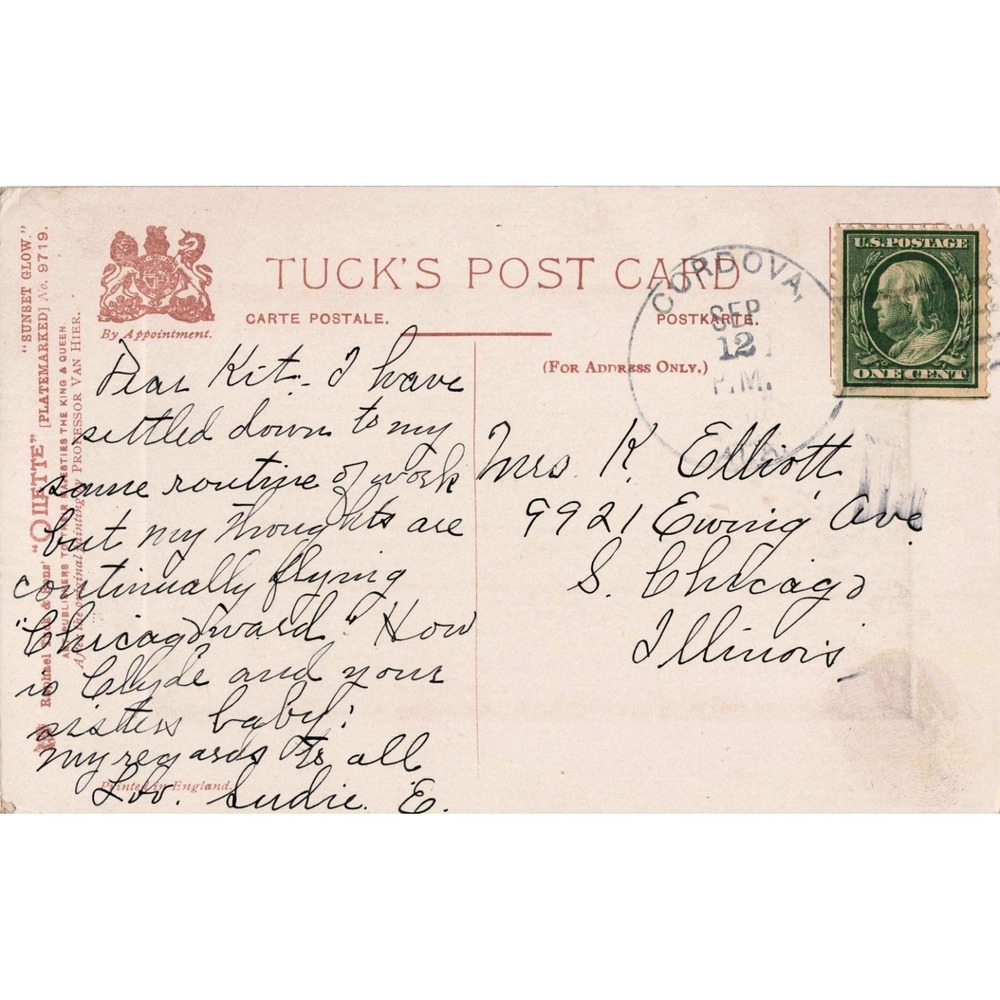 "SUNSET GLOW."
"OILETTE" [PLATEMARKED] No. 9719.
PUBLISHERS TO THEIR MAJESTIES THE KING & QUEEN.
After the original painting by PROFESSOR VAN HIER.
By Appointment.
TUCK'S POST CARD
CARTE POSTALE. POSTKARTE.
(FOR ADDRESS ONLY.)
CORDOVA,
SEP
12
P.M.
U.S. POSTAGE
ONE CENT
Dear Kit - I have
settled down to my
same routine of work
but my thoughts are
continually flying
"Chicagoward" How
is Clyde and your
sisters baby?
my regards to all
Lov. Sudie. E.
Printed in England.
Mrs K. Elliott
9921 Ewing Ave
S. Chicago
Illinois